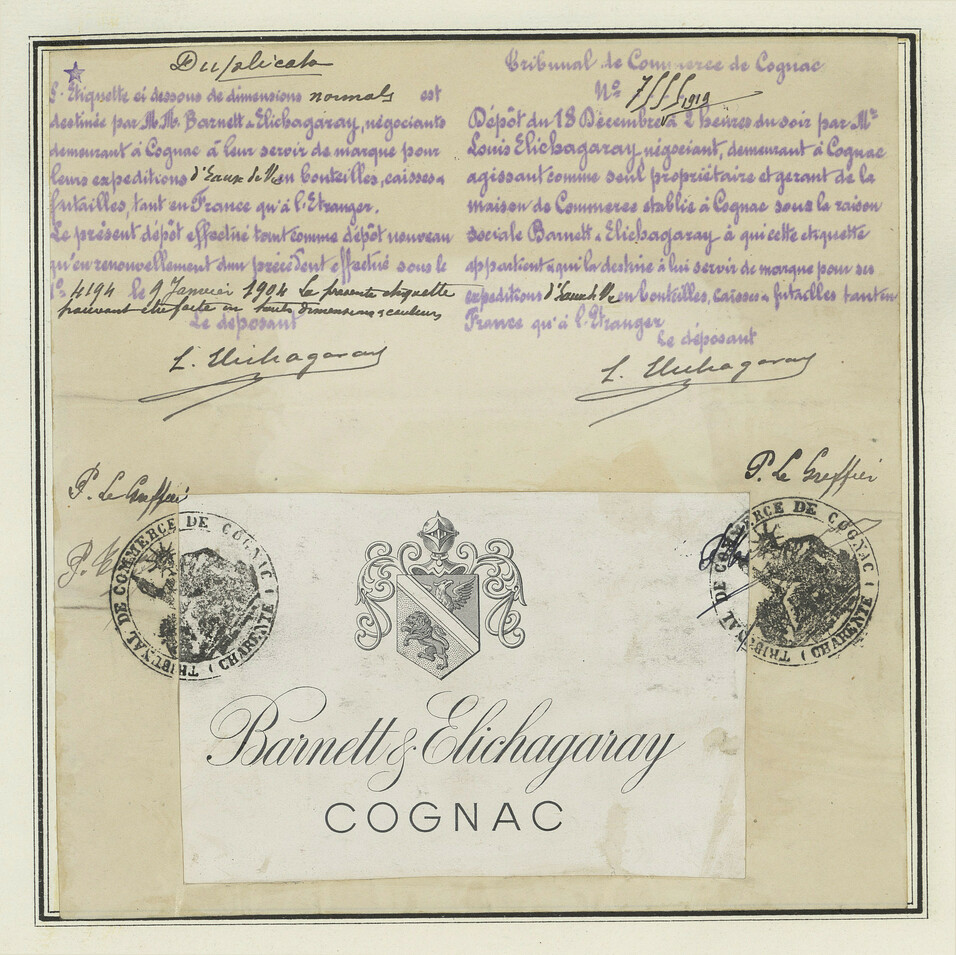 Duplicata
L'Etiquette ci dessous de dimensions normals est
destinée par M.M. Barnett & Elichagaray, négociants
demeurant à Cognac à leur servir de marque pour
leurs expeditions d'Eaux de Vie en bouteilles, caisses &
futailles, tant en France qu'à l'Etranger.
Le présent dépôt effectué tant comme dépôt nouveau
qu'en renouvellement d'un précédent effectué sous le
No 4194 le 9 Janvier 1904 La presente etiquette
pouvant être faite en toutes dimensions & couleurs
Le déposant
L. Elichagaray
P. Le Greffier
Tribunal de Commerce de Cognac
No 1919
Dépôt du 18 Décembre à 2 heures du soir par Mr
Louis Elichagaray, négociant, demeurant à Cognac
agissant comme seul propriétaire et gerant de la
maison de Commerce etablie à Cognac sous la raison
sociale Barnett & Elichagaray à qui cette etiquette
appartient & qui la destine à lui servir de marque pour ses
expeditions d'Eaux de Vie en bouteilles, caisses & futailles tant en
France qu'à l'Etranger
Le déposant
L. Elichagaray
P. Le Greffier
TRIBUNAL DE COMMERCE DE COGNAC (CHARENTE)
TRIBUNAL DE COMMERCE DE COGNAC (CHARENTE)
Barnett & Elichagaray
COGNAC